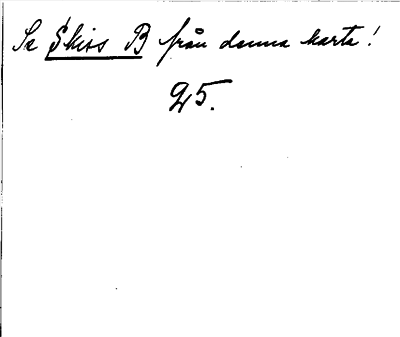 Se Skiss B från denna karta!
25.